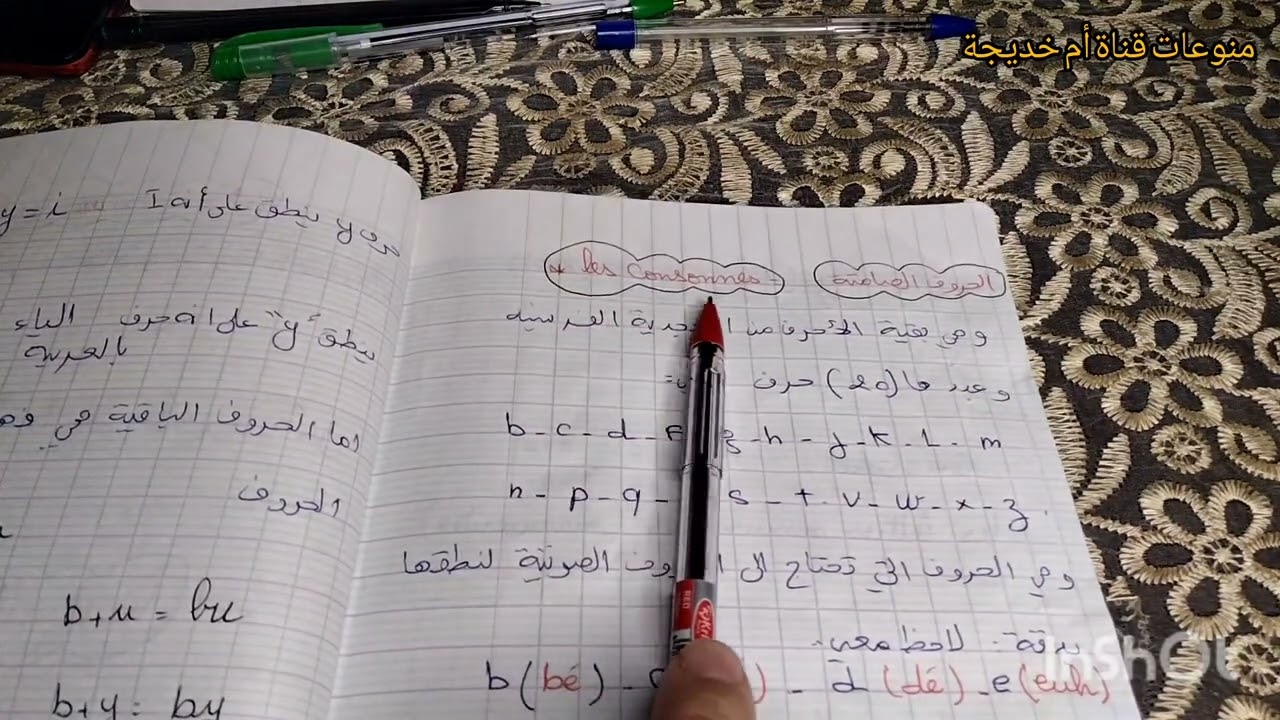 منوعات قناة أم خديجة
y = i حرف y ينطق على أنه I
ينطق "y" على انه حرف الياء
بالعربية
اما الحروف الباقية هي
الحروف
b+u = bu
b+y = by
* les consonnes الحروف الصامتة
وهي بقية الأحرف من الفرنسية
وعددها (20) حرف
b - c - d - f - g - h - j - k - L - m
n - p - q - s - t - v - w - x - z.
وهي الحروف التي تحتاج الى الصوتية لنطقها
بدقة. لاحظ معي.
b (bé) - d (dé) - e (euh)
RED
InShOt